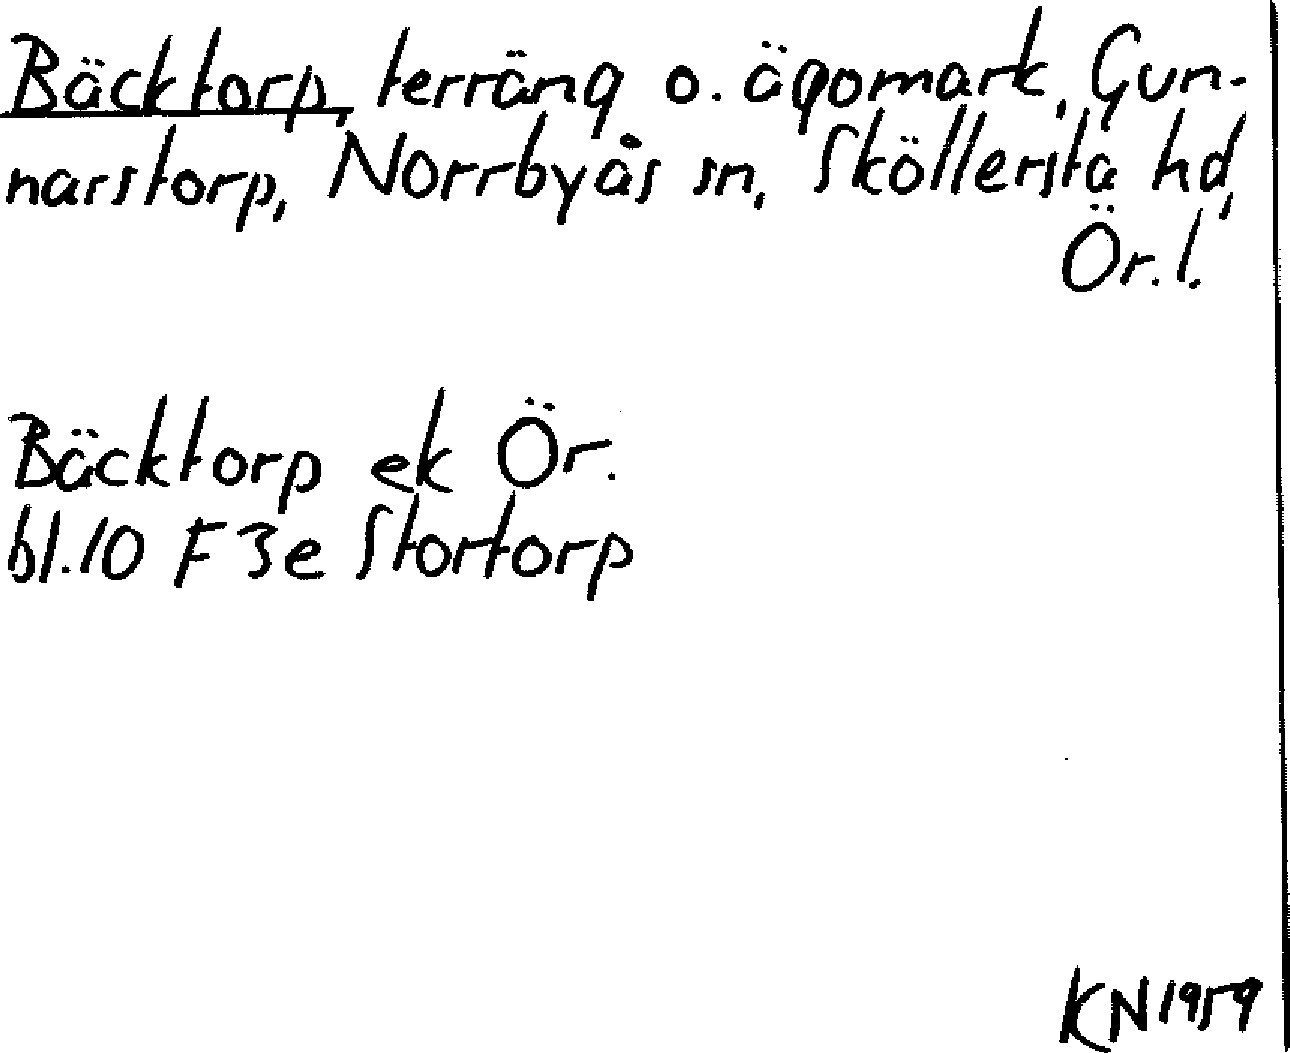 Bäcktorp, terräng o. ägomark, Gun-
narstorp, Norrbyås sn, Sköllersta hd,
Ör. l.
Bäcktorp ek Ör.
bl. 10 F 3e Stortorp
KN 1959